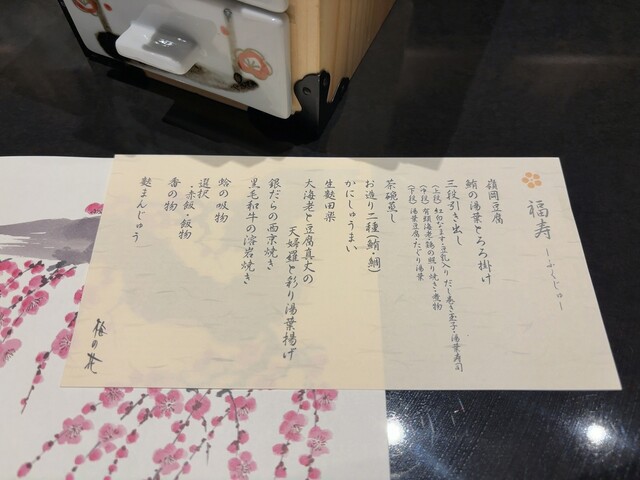 福寿 ―ふくじゅ―
嶺岡豆腐
鮪の湯葉とろろ掛け
三段引き出し
(上段) 紅白なます・豆乳入りだし巻き玉子・湯葉寿司
(中段) 有頭海老・鶏の照り焼き・煮物
(下段) 湯葉豆腐・たぐり湯葉
茶碗蒸し
お造り二種(鮪・鯛)
かにしゅうまい
生麩田楽
大海老と豆腐真丈の
天婦羅と彩り湯葉揚げ
銀だらの西京焼き
黒毛和牛の溶岩焼き
蛤の吸物
選択
・赤飯・飯物
香の物
麩まんじゅう
梅の花